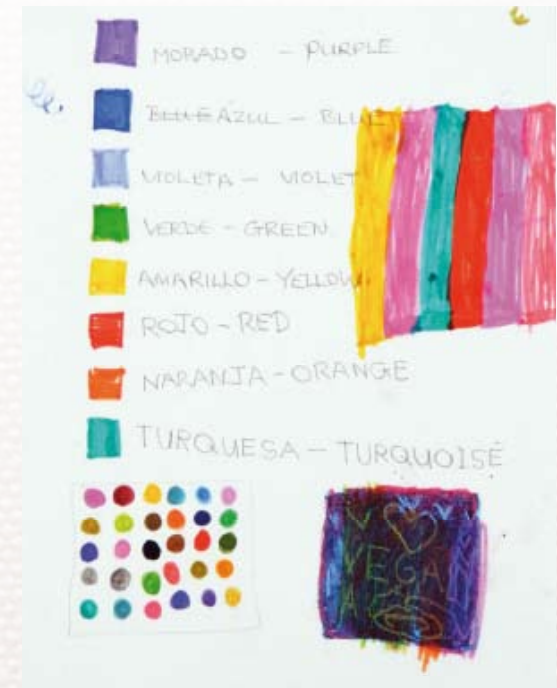 MORADO - PURPLE
BLUE AZUL - BLUE
VIOLETA - VIOLET
VERDE - GREEN
AMARILLO - YELLOW
ROJO - RED
NARANJA - ORANGE
TURQUESA - TURQUOISE
VEGA